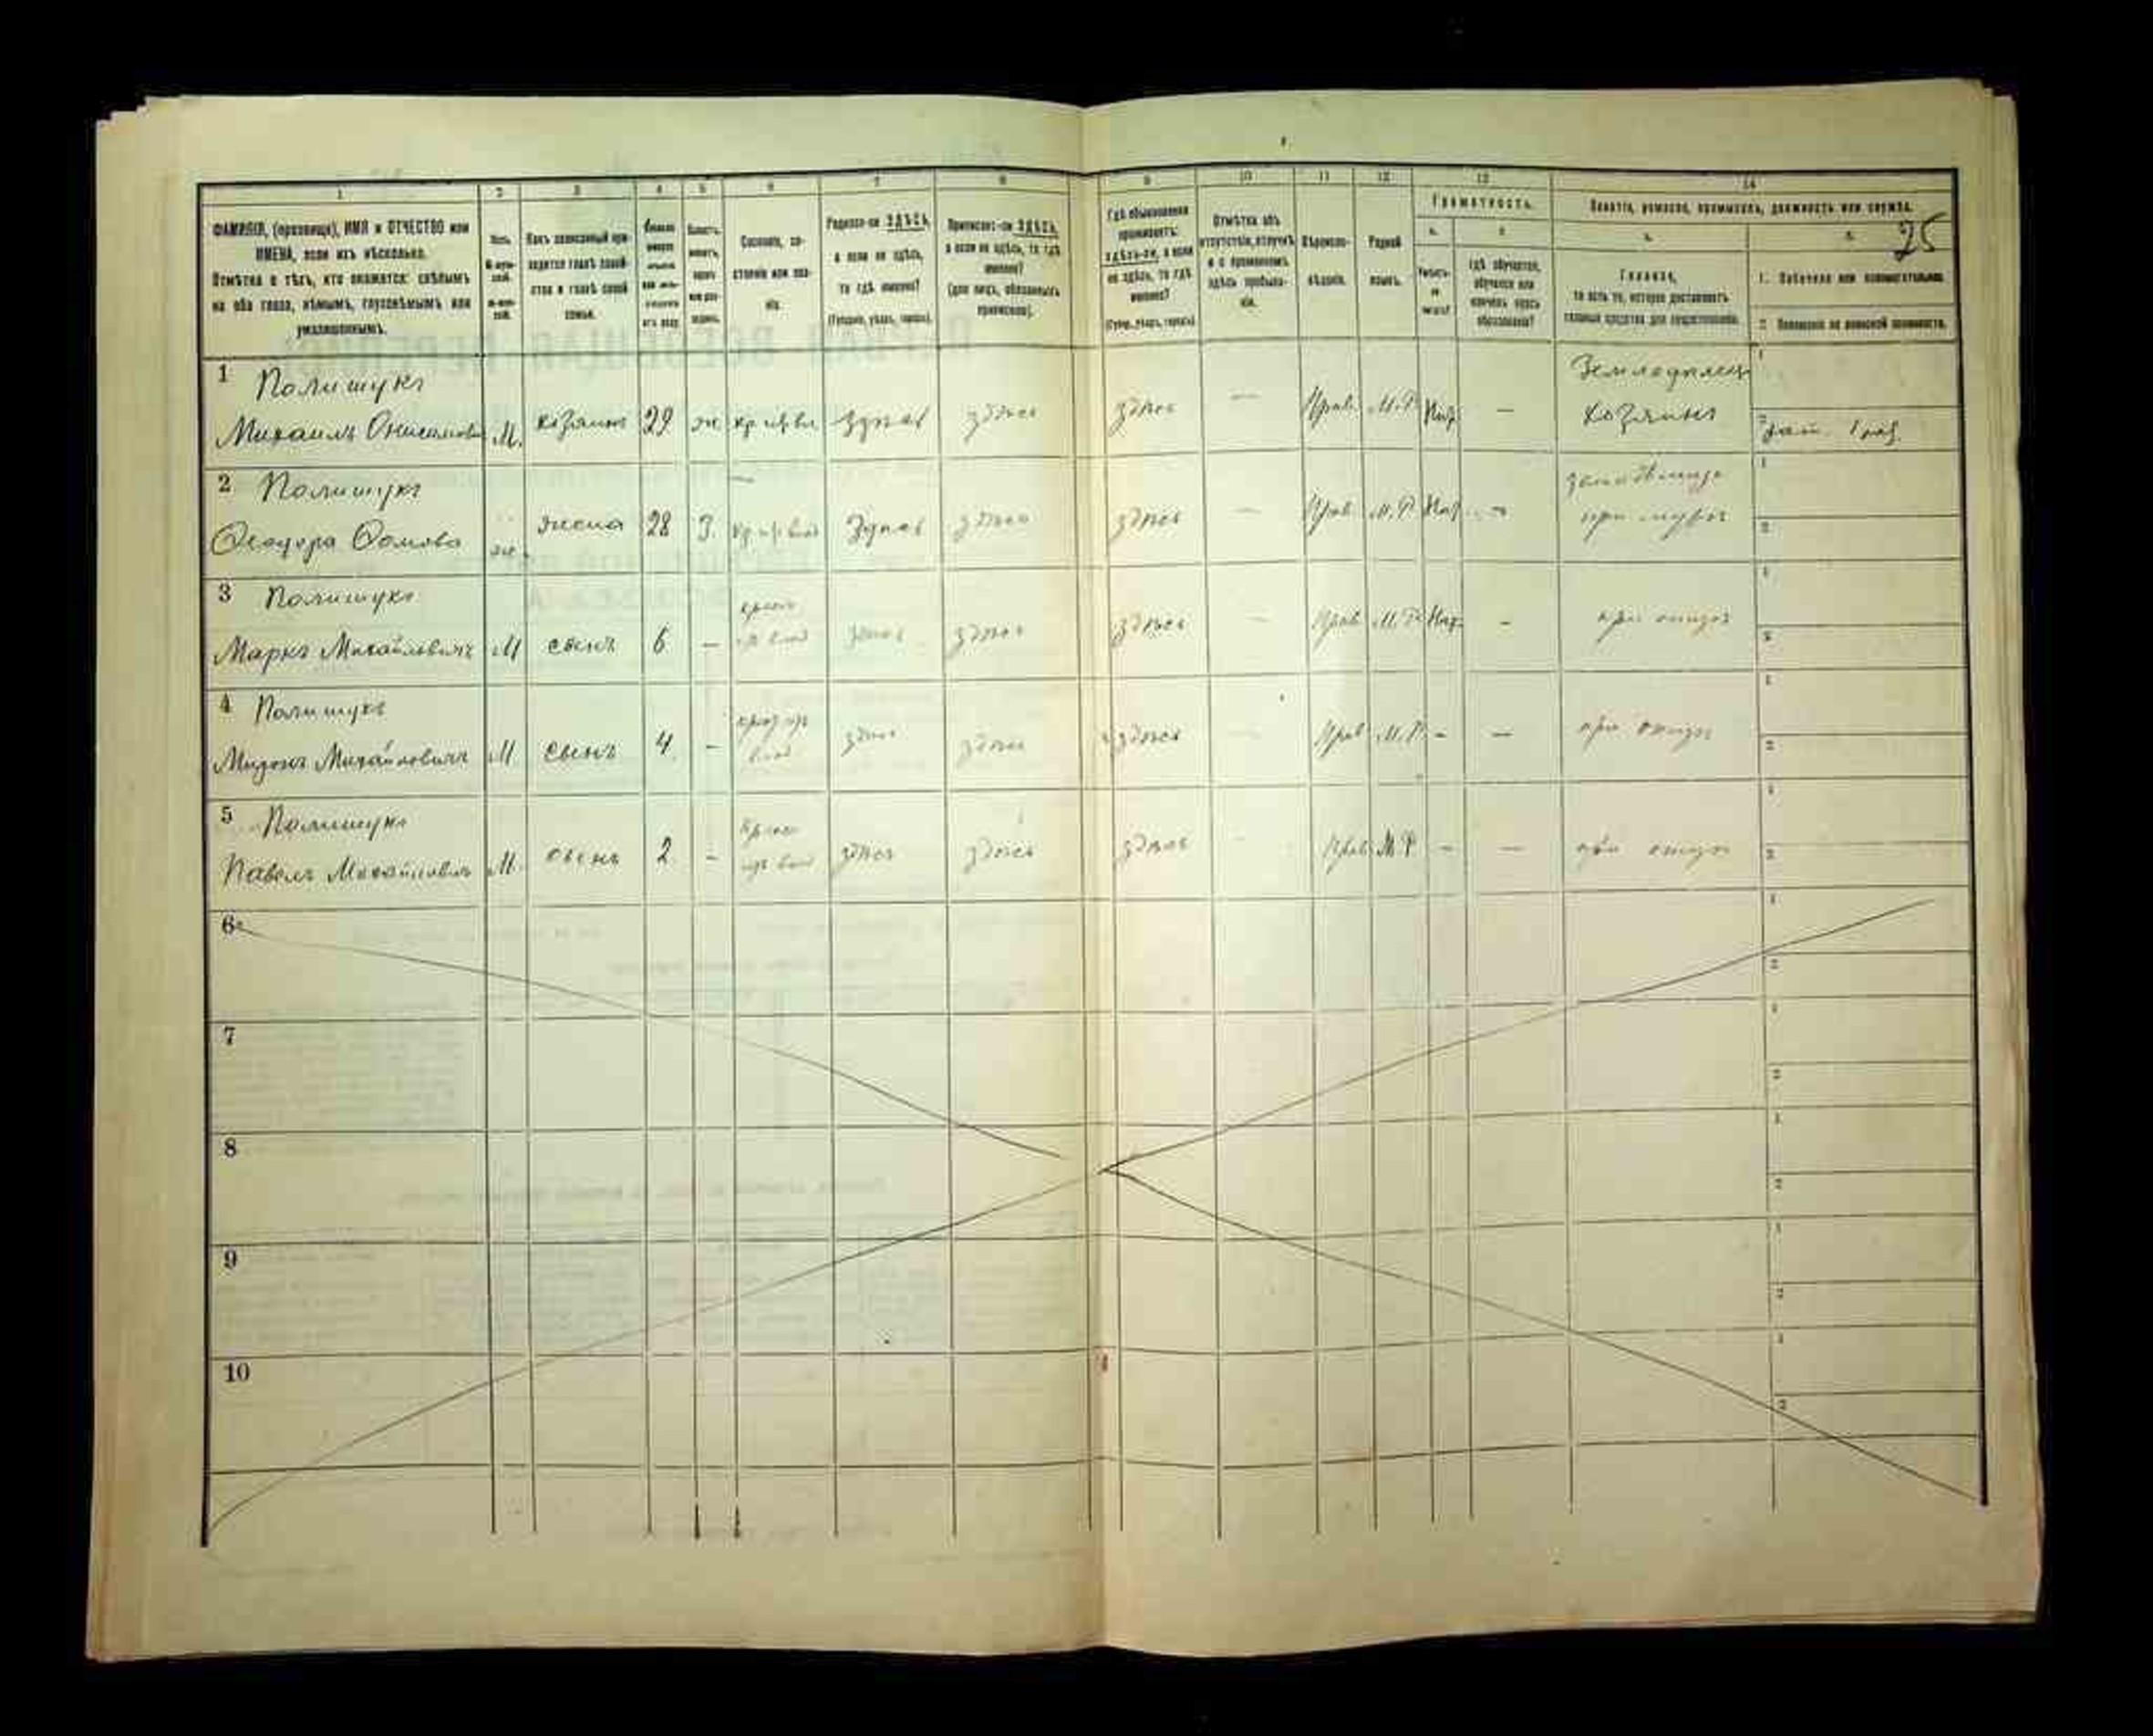 1 2 3 4 5 6 7 8 9 10 11 12 13 14
25
ФАМИЛІЯ, (прозвище), ИМЯ и ОТЧЕСТВО или
ИМЕНА, если ихъ нѣсколько.
Отмѣтка о тѣхъ, кто окажется: слѣпымъ
на оба глаза, нѣмымъ, глухонѣмымъ или
умалишеннымъ.
Полъ.
Какъ записанный при-
ходится главѣ хозяй-
ства и главѣ своей
семьи.
Сословіе, со-
стояніе или зва-
ніе.
Родился-ли ЗДѢСЬ,
а если не здѣсь,
то гдѣ именно?
(Губернія, уѣздъ, городъ).
Приписанъ-ли ЗДѢСЬ,
а если не здѣсь, то гдѣ
именно?
(для лицъ, обязанныхъ
припискою).
Гдѣ обыкновенно
проживаетъ:
здѣсь-ли, а если
не здѣсь, то гдѣ
именно?
(Губер., уѣздъ, городъ)
Отмѣтка объ
отсутствіи, отлучкѣ
и о временномъ
здѣсь пребыва-
ніи.
Вѣроиспо-
вѣданіе.
Родной
языкъ.
Грамотность.
а. б.
Умѣетъ-
ли
читать?
Гдѣ обучается,
обучался или
кончилъ курсъ
образованія?
Занятіе, ремесло, промыселъ, должность или служба.
а. б.
Главное,
то есть то, которое доставляетъ
главныя средства для существованія.
1. Побочное или вспомогательное.
2. Положеніе по воинской повинности.
1 Полищукъ Земледѣлец 1
Михаилъ Онисимовъ М. хозяинъ 29 ж кр из вл здѣсь здѣсь здѣсь — Прав. М.Р. Нѣт — хозяинъ 2
2 Полищукъ 1
Ѳеодора Ѳомова ж. жена 28 З. кр. из влад здѣсь здѣсь здѣсь — Прав. М.Р. Нѣт — при мужѣ 2
3 Полищукъ 1
Маркъ Михайловичъ М сынъ 6 — здѣсь здѣсь здѣсь — Прав М.Р. Нѣт. — при отцѣ 2
4 Полищукъ 1
Миронъ Михайловичъ М сынъ 4 — здѣсь здѣсь здѣсь — Прав М.Р. — — при отцѣ 2
5 Полищукъ 1
Павелъ Михайлович М. сынъ 2 — здѣсь здѣсь здѣсь — Прав М.Р — — при отцѣ 2
6 1
2
7 1
2
8 1
2
9 1
2
10 1
2